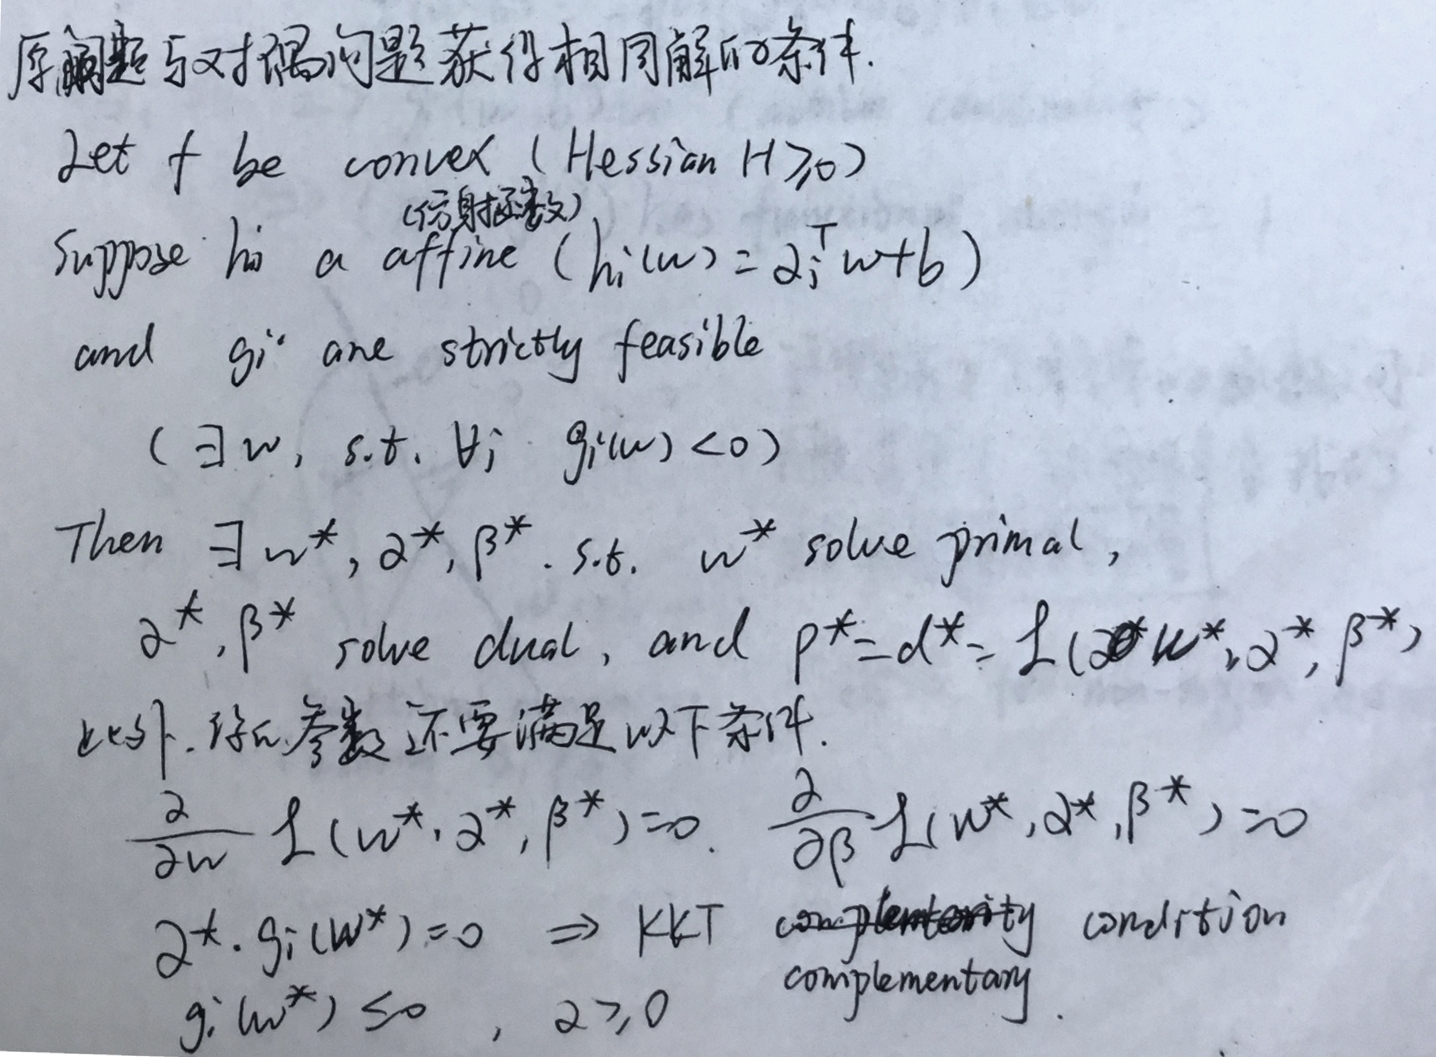 原问题与对偶问题获得相同解的条件.
Let f be convex (Hessian H≥0)
(仿射函数)
Suppose hi a affine (hi(w) = αi^T w+b)
and gi are strictly feasible
(∃w, s.t. ∀i gi(w) <0)
Then ∃w*, α*, β*. s.t. w* solve primal,
α*, β* solve dual, and p*=d*= L(w*, α*, β*)
此外. 参数还要满足以下条件.
∂/∂w L(w*, α*, β*)=0. ∂/∂β L(w*, α*, β*)=0
α*·gi(w*)=0 ⇒ KKT condition
complementary
gi(w*) ≤0 , α≥0 .